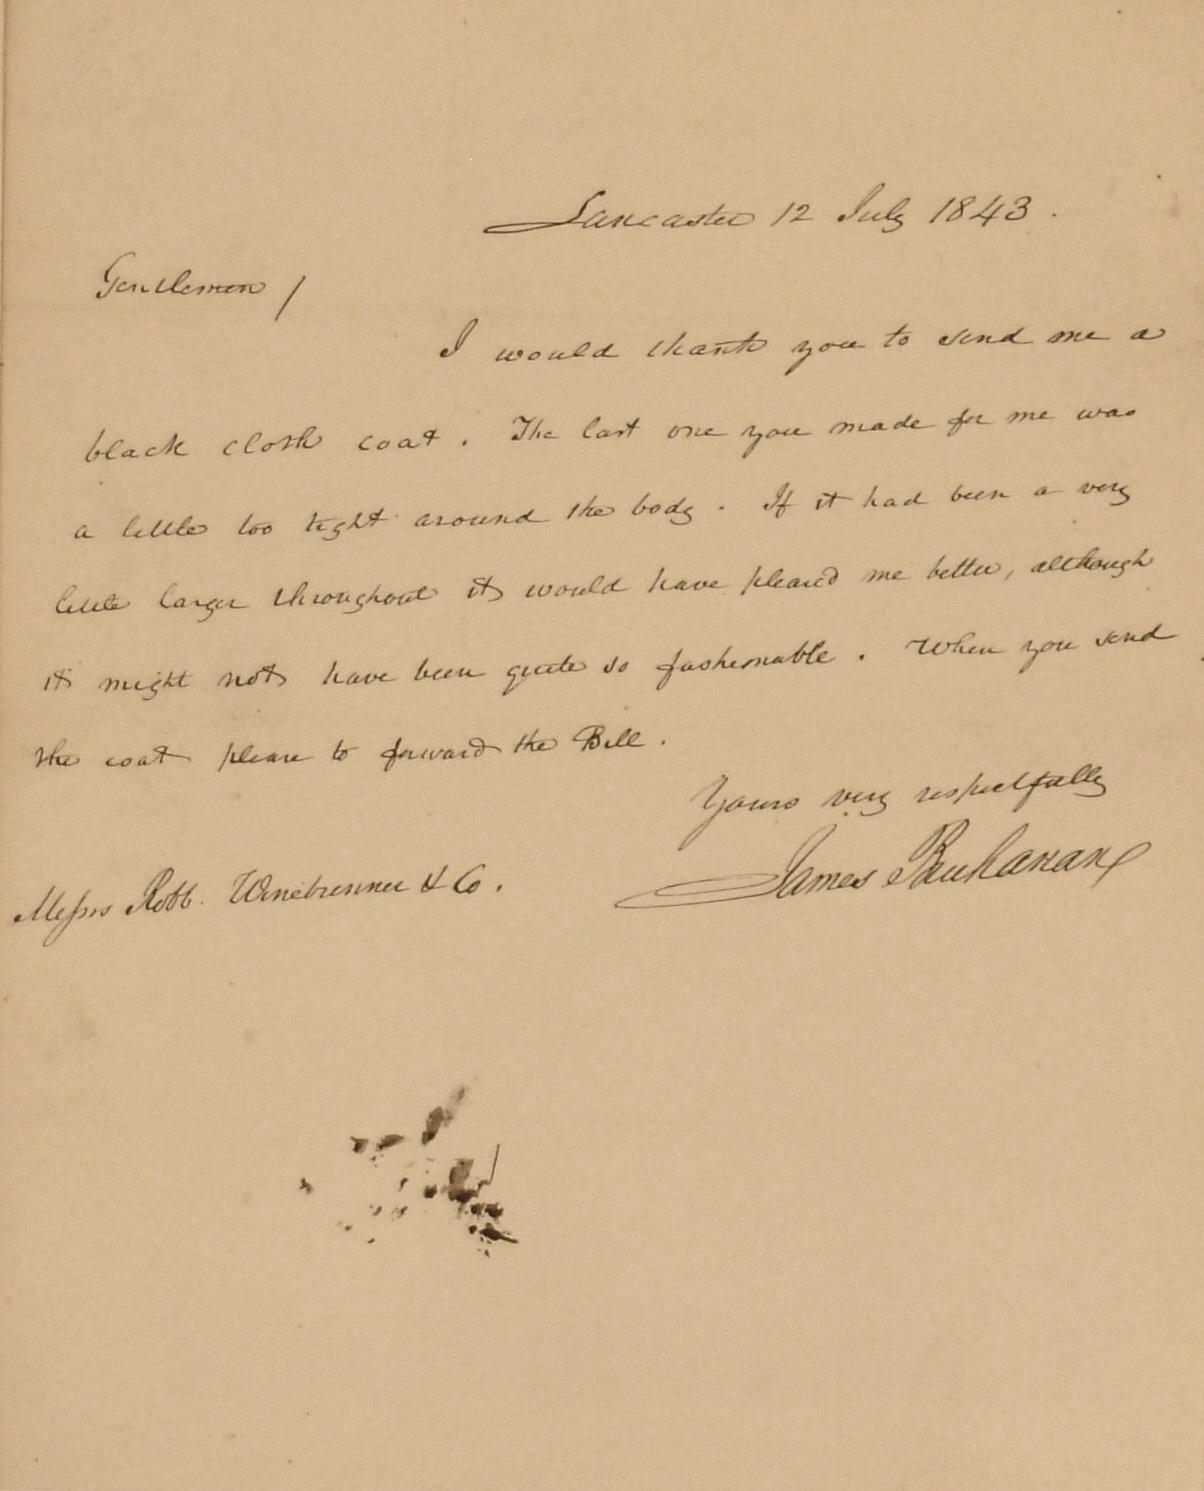 Lancaster 12 July 1843.
Gentlemen /
I would thank you to send me a
black cloth coat. The last one you made for me was
a little too tight around the body. If it had been a very
little larger throughout it would have pleased me better, although
it might not have been quite so fashionable. When you send
the coat please to forward the Bill.
Yours very respectfully
James Buchanan
Messrs Robb. Winebrenner & Co.